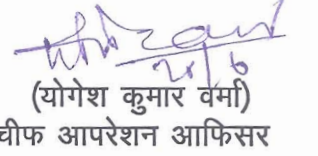 20/6
(योगेश कुमार वर्मा)
चीफ आपरेशन आफिसर